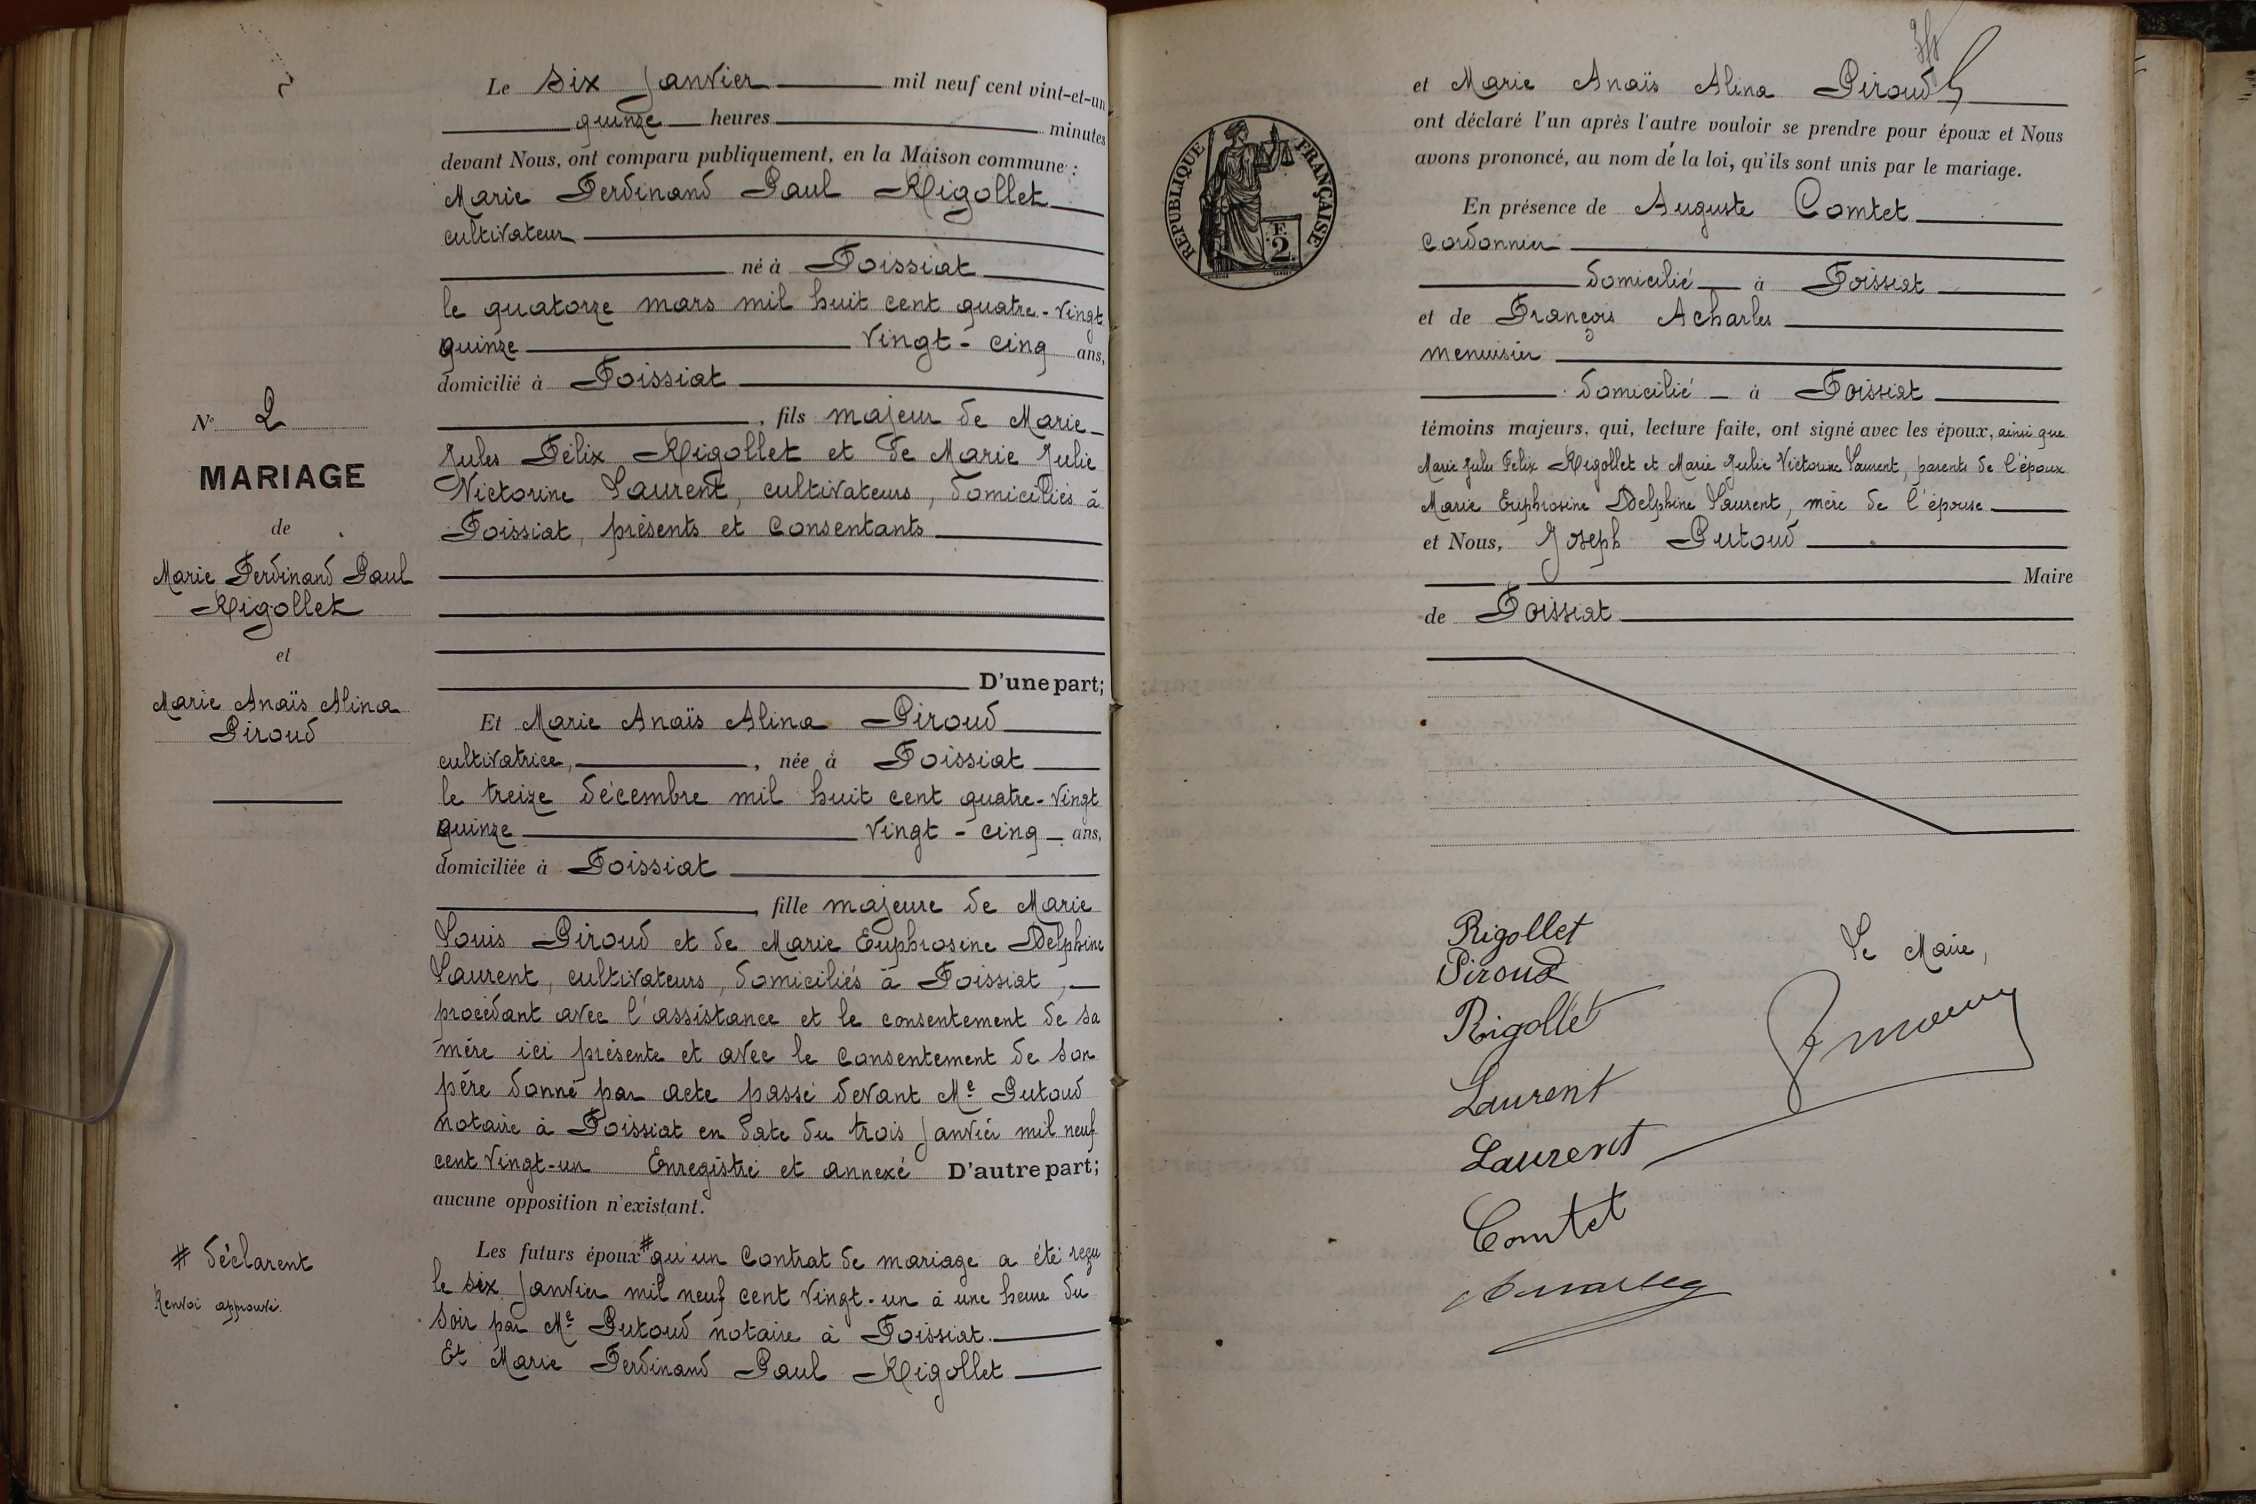 Le six Janvier mil neuf cent vint-et-un
quinze heures minutes
devant Nous, ont comparu publiquement, en la Maison commune :
Marie Ferdinand Paul Rigollet
cultivateur
né à Foissiat
le quatorze mars mil huit cent quatre-vingt
quinze vingt-cinq ans,
domicilié à Foissiat
, fils majeur de Marie
Jules Félix Rigollet et de Marie Julie
Victorine Laurent, cultivateurs, domiciliés à
Foissiat, présents et consentants
N° 2
MARIAGE
de
Marie Ferdinand Paul
Rigollet
et
Marie Anaïs Alina
Piroud
D'une part;
Et Marie Anaïs Alina Piroud
cultivatrice, , née à Foissiat
le treize décembre mil huit cent quatre-vingt
quinze vingt-cinq ans,
domiciliée à Foissiat
, fille majeure de Marie
Louis Piroud et de Marie Euphrosine Delphine
Laurent, cultivateurs, domiciliés à Foissiat,
procédant avec l'assistance et le consentement de sa
mère ici présente et avec le consentement de son
père donné par acte passé devant Me Putoud
notaire à Foissiat en date du trois Janvier mil neuf
cent vingt-un Enregistré et annexé D'autre part;
aucune opposition n'existant.
Les futurs époux # qu'un Contrat de mariage a été reçu
le six Janvier mil neuf cent vingt-un à une heure du
soir par Me Putoud notaire à Foissiat.
Et Marie Ferdinand Paul Rigollet
# déclarent
Renvoi approuvé.
et Marie Anaïs Alina Piroud
ont déclaré l'un après l'autre vouloir se prendre pour époux et Nous
avons prononcé, au nom de la loi, qu'ils sont unis par le mariage.
RÉPUBLIQUE FRANÇAISE
F.
2
En présence de Auguste Comtet
cordonnier
domicilié à Foissiat
et de François Acharles
menuisier
domicilié à Foissiat
témoins majeurs, qui, lecture faite, ont signé avec les époux, ainsi que
Marie Jules Felix Rigollet et Marie Julie Victorine Laurent, parents de l'époux
Marie Euphrosine Delphine Laurent, mère de l'épouse
et Nous, Joseph Putoud
Maire
de Foissiat
Rigollet
Piroud
Rigollet
Laurent
Laurent
Comtet
Le Maire,